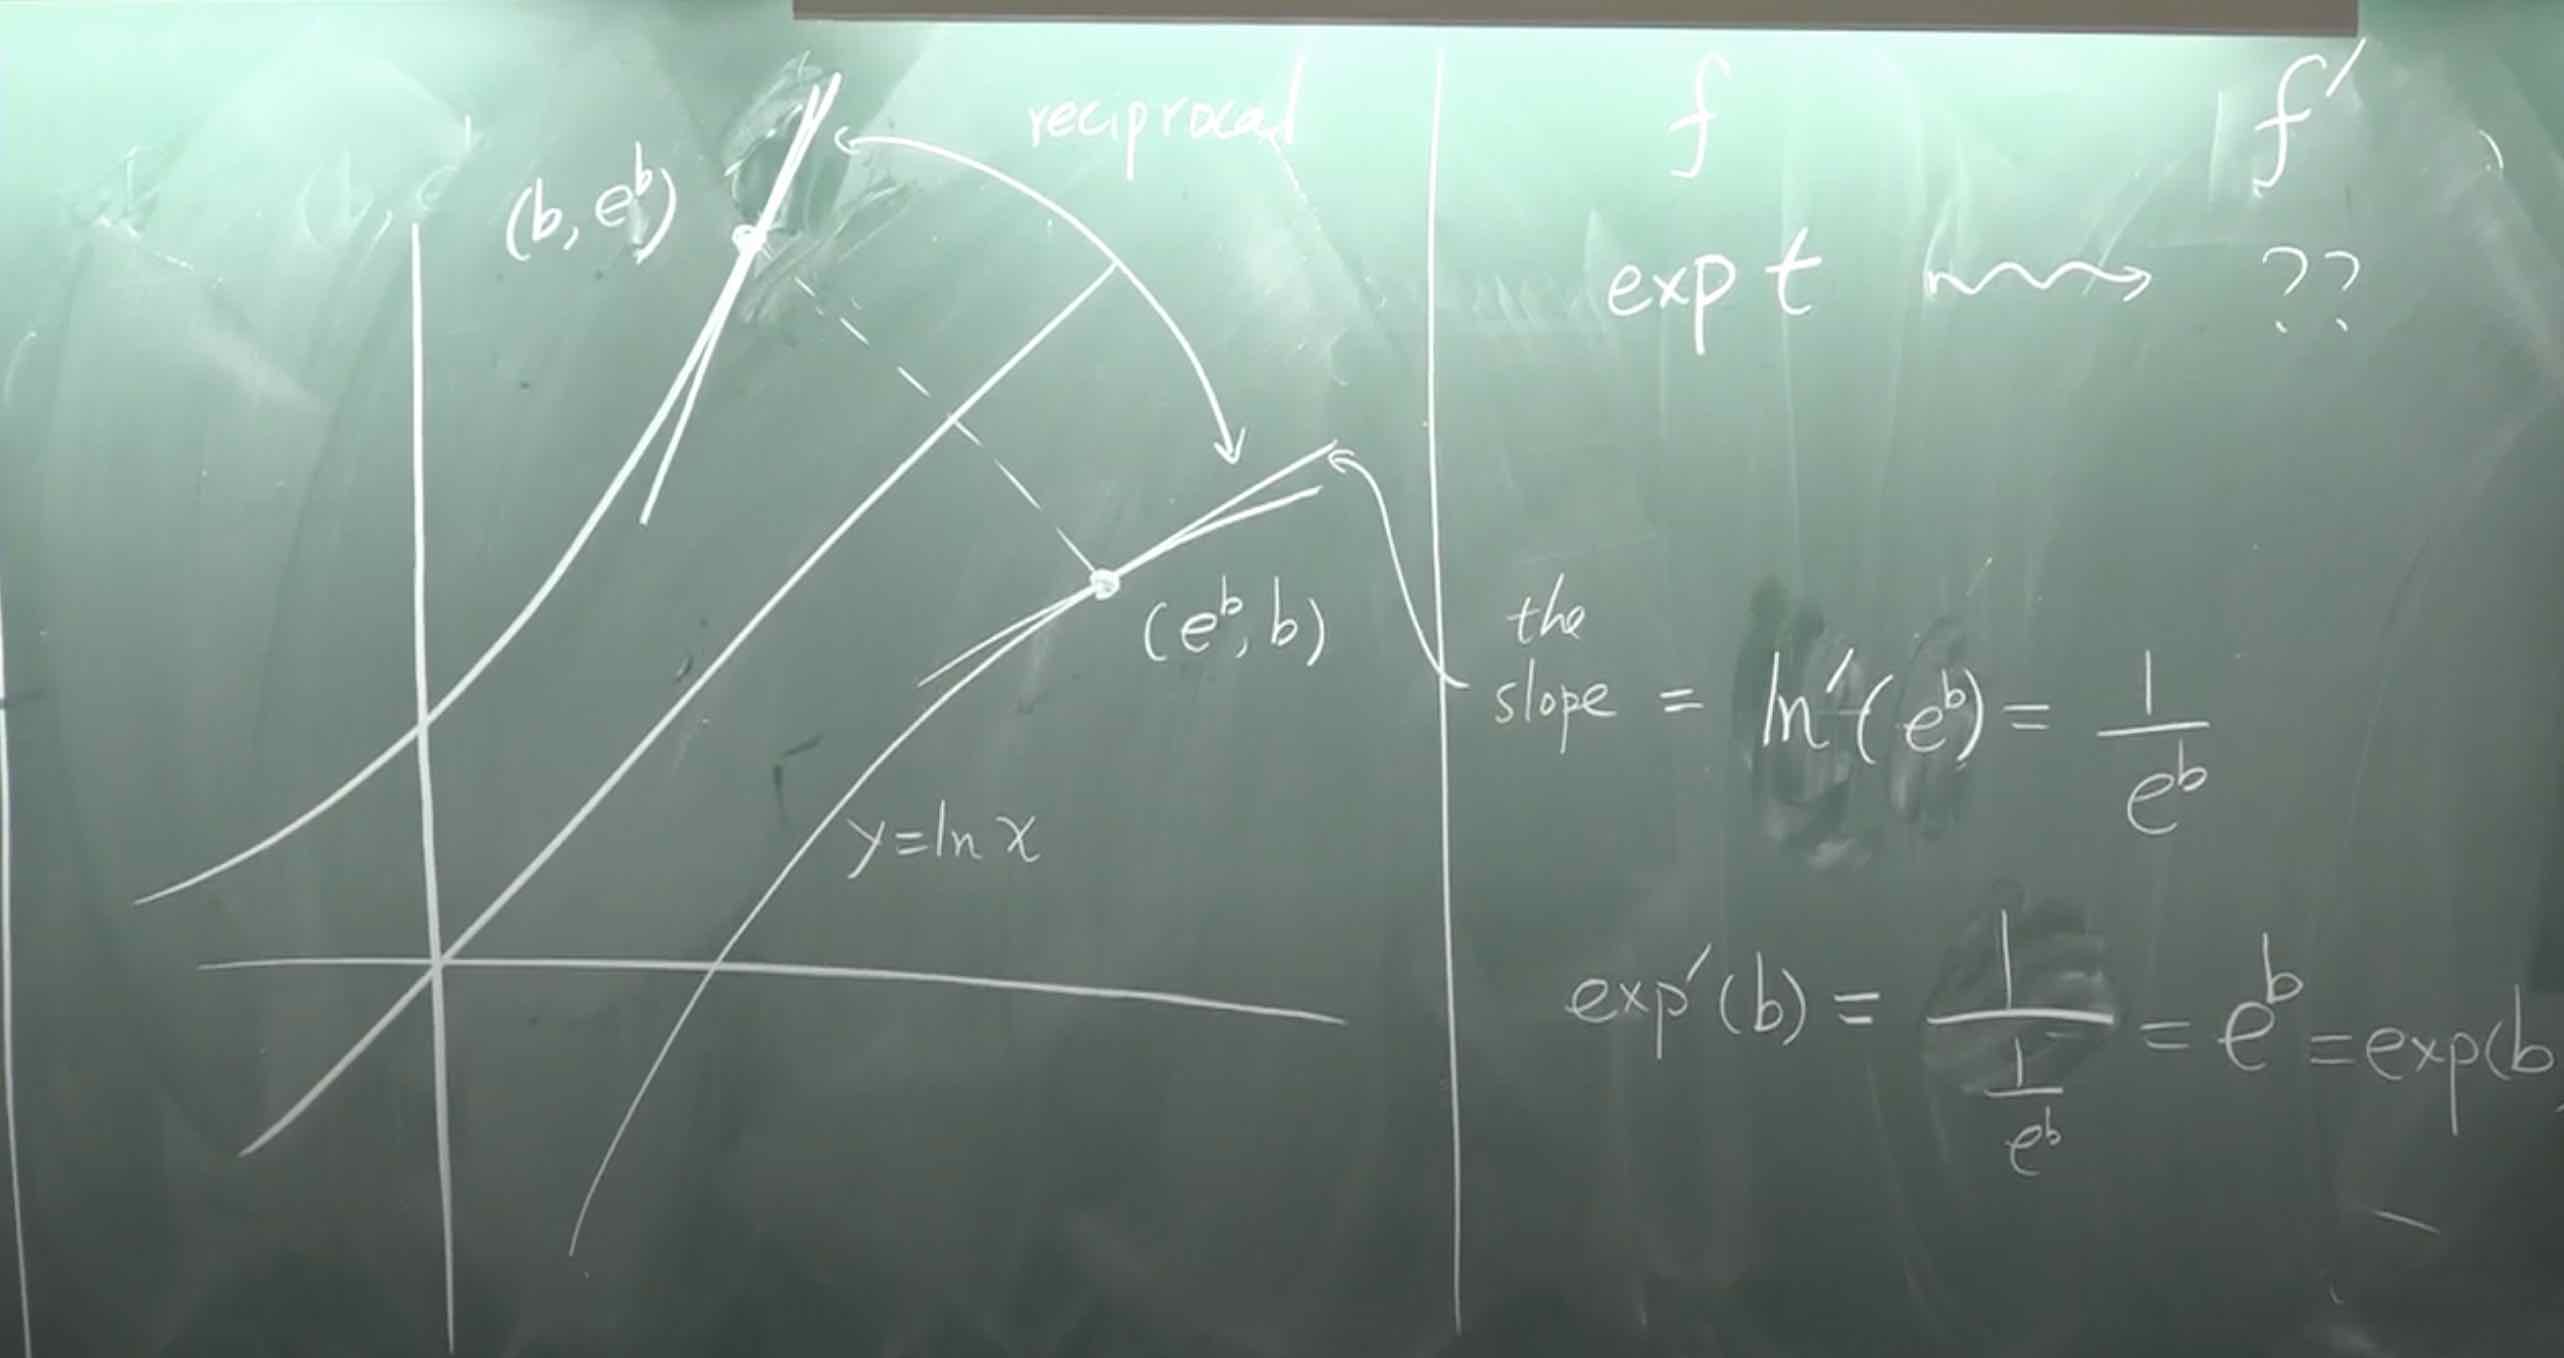 reciprocal
(b, e^b)
(e^b, b)
y=ln x
f f′
exp t ⟿ ??
the
slope = ln′(e^b) = 1/e^b
exp′(b) = 1/(1/e^b) = e^b = exp(b